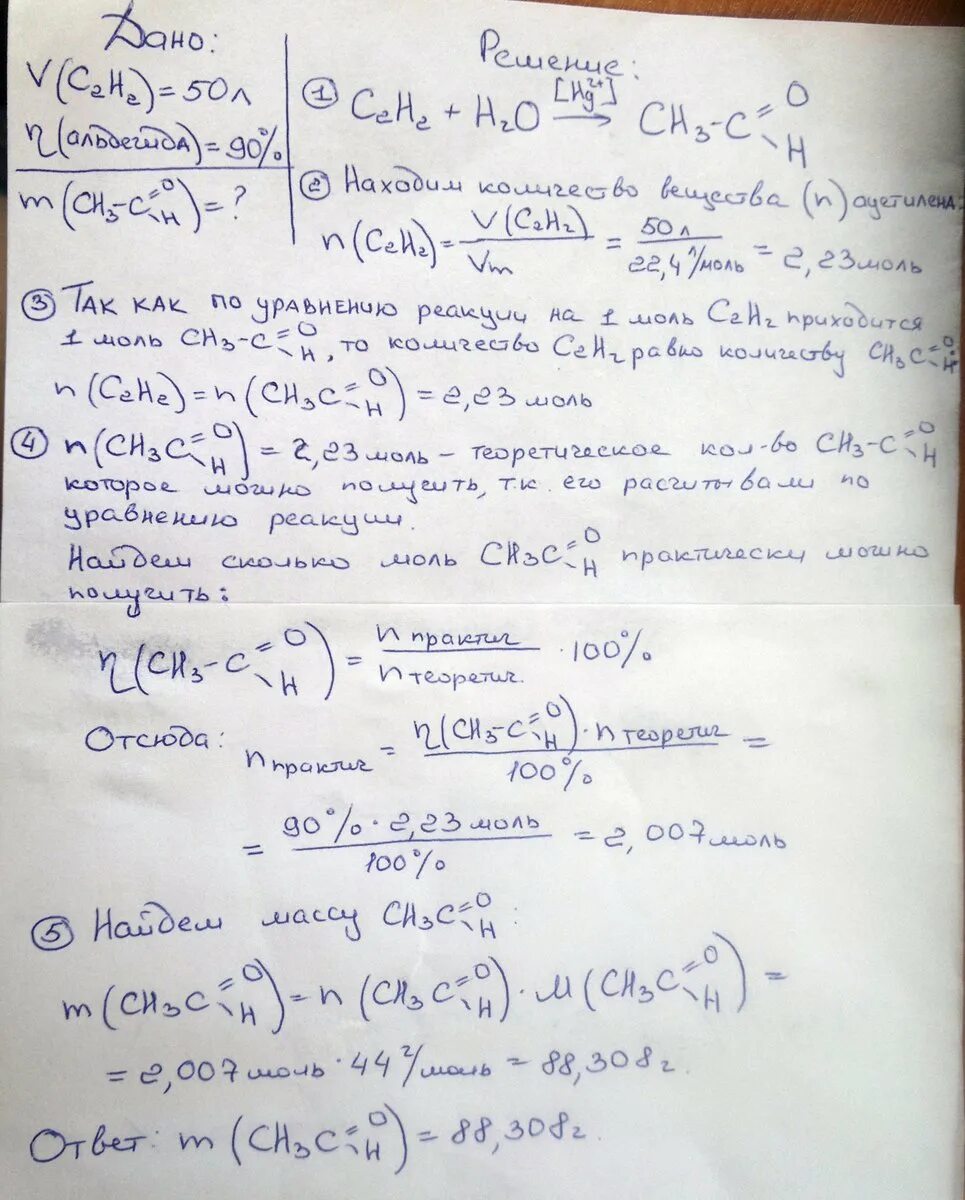 Дано:
V(C₂H₂)=50л
η(альдегида)=90%
m(CH₃-C=O-H)=?
Решение:
① C₂H₂ + H₂O [Hg²⁺]→ CH₃-C=O-H
② Находим количество вещества (n) ацетилена:
n(C₂H₂)= V(C₂H₂)/Vm = 50л/22,4л/моль = 2,23моль
③ Так как по уравнению реакции на 1 моль C₂H₂ приходится
1 моль CH₃-C=O-H, то количество C₂H₂ равно количеству CH₃C=O-H:
n(C₂H₂)=n(CH₃C=O-H)=2,23моль
④ n(CH₃C=O-H)=2,23моль – теоретическое кол-во CH₃-C=O-H
которое можно получить, т.к. его расчитывали по
уравнению реакции.
Найдем сколько моль CH₃C=O-H практически можно
получить:
η(CH₃-C=O-H)= n практич/n теоретич. · 100%
Отсюда: n практич = η(CH₃-C=O-H)·n теоретич/100% =
= 90%·2,23моль/100% = 2,007моль
⑤ Найдем массу CH₃C=O-H:
m(CH₃C=O-H)=n(CH₃C=O-H)·M(CH₃C=O-H)=
=2,007моль·44г/моль=88,308г.
Ответ: m(CH₃C=O-H)=88,308г.